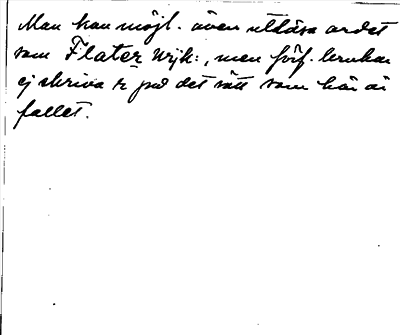 Man kan möjl. även utläsa ordet
som Flater Wijk:, men förf. brukar
ej skriva r på det sätt som här är
fallet.